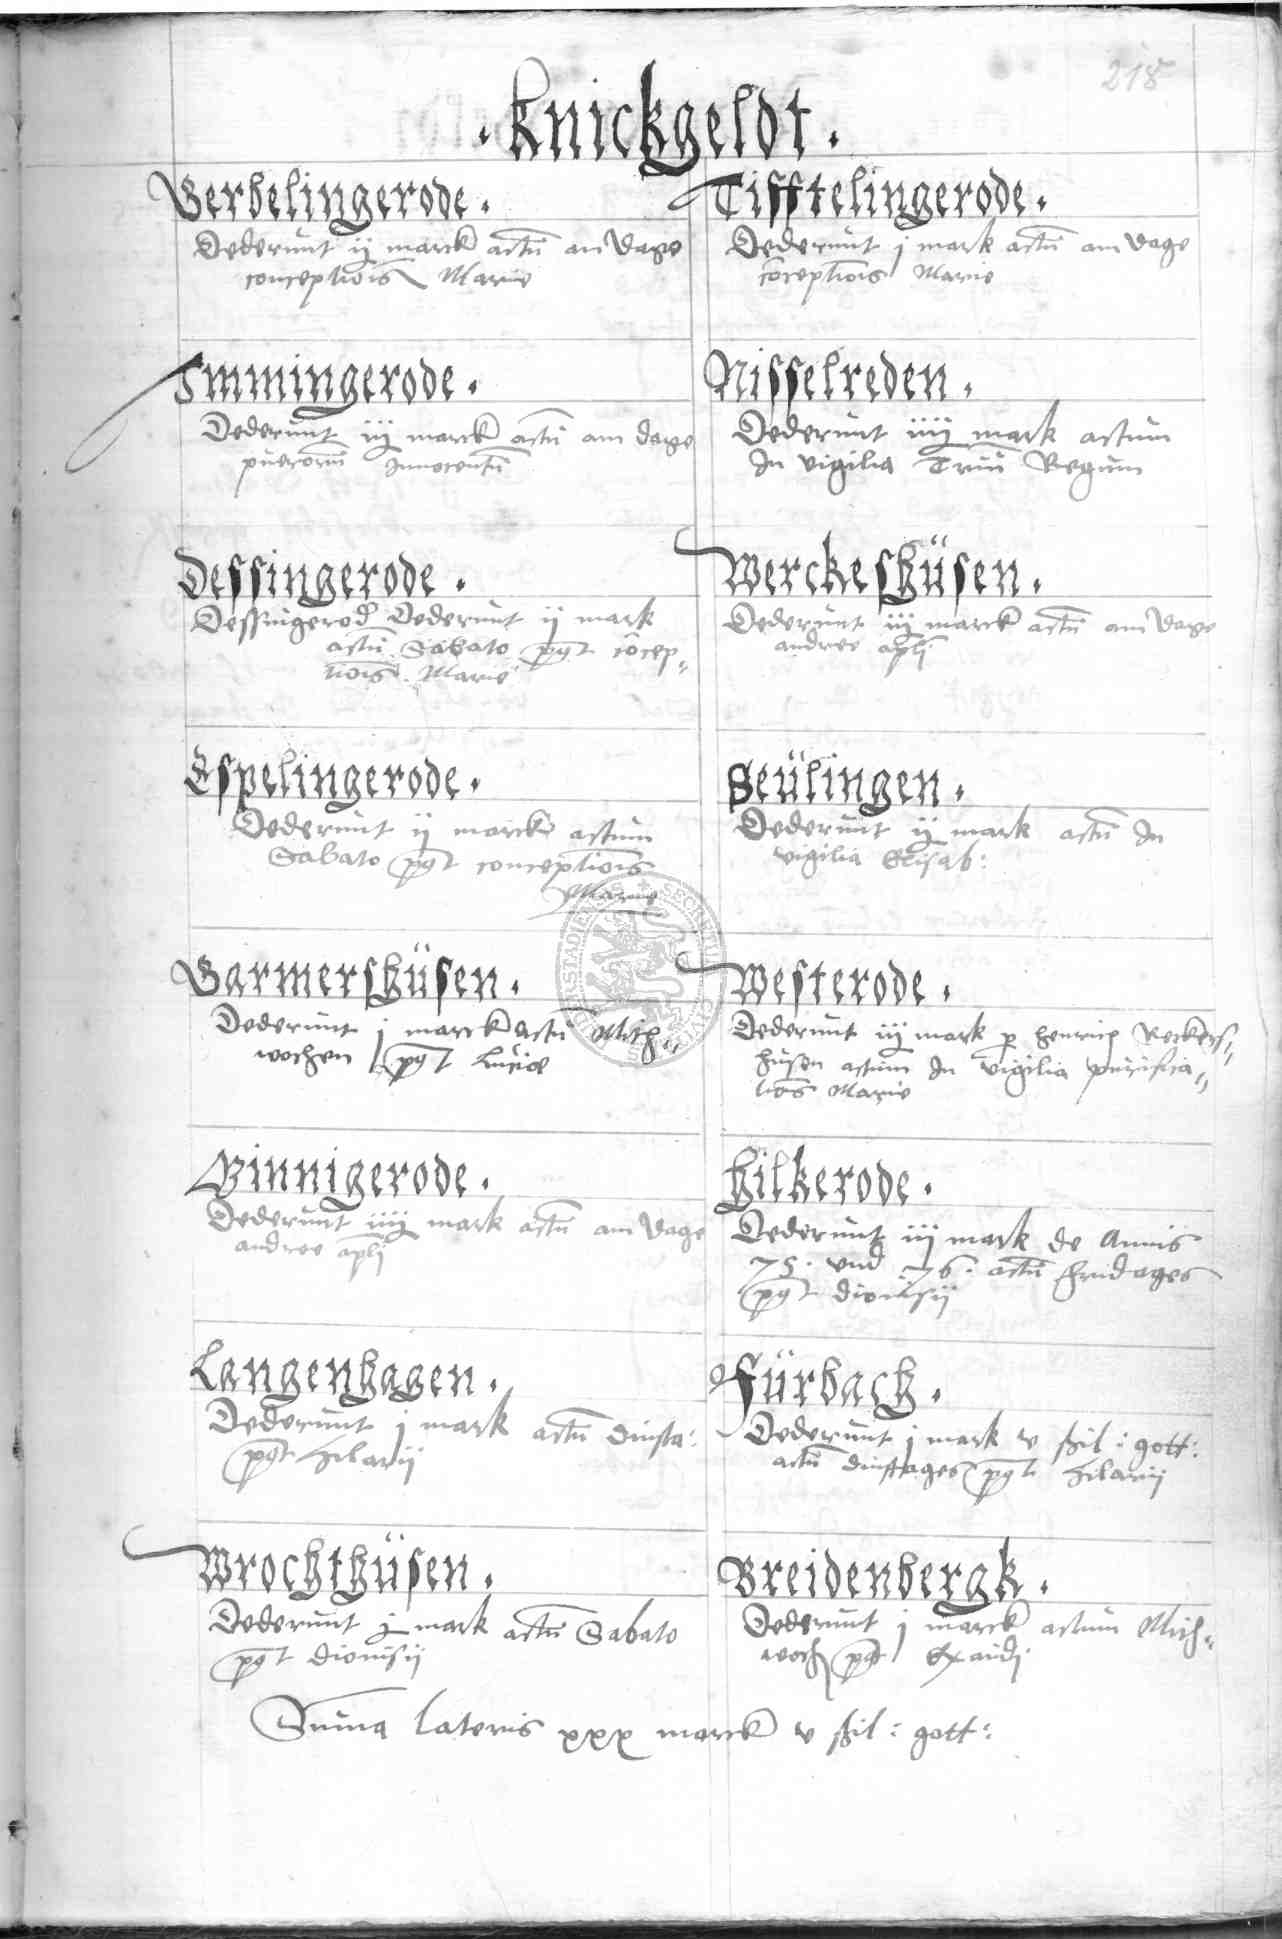 218
. Knickgeldt .
Gerbelingerode .
Dederunt ij marck actū am dage
conceptiōis Marie
Tifftelingerode .
Dederunt j mark actū am dage
cōceptiōis Marie
Immingerode .
Dederunt iij marck actū am dage
puerorūm Innocentū
Nisselreden .
Dederunt iiij mark actum
In vigilia Triū Regum
Dessingerode .
Dessingerod Dederunt ij mark
actū Sabato pꝰt cōcep„
tiōis Marie
Werckeshüsen .
Dederunt iij marck actū am dage
andree apli
Espelingerode .
Dederunt ij marck actum
Sabato pꝰt conceptiōis
Marie
Seülingen .
Dederunt ij mark actū In
vigilia Elisab:
Germershüsen .
Dederunt j marck actū Mith„
wochen pꝰt Lucie
Westerode .
Dederunt iij mark p henrich Reckers„
husen actum In vigilia purifica„
tiōs Marie
Binnigerode .
Dederunt iiij mark actū am dage
andree apli
Hilkerode .
Dederunt iij mark de Annis
75 . vnd 76 . actū fridages
pꝰt dionisij
Langenhagen .
Dederunt j mark actū dinsta:
pꝰt Hilarij
Fürbach .
Dederunt j mark v ßil : gott:
actū dinstages pꝰt Hilarij
Wrochthüsen .
Dederunt j mark actū Sabato
pꝰt dionisij
Breidenbergk .
Dederunt j marck actum Mith„
woch pꝰt Exaudi
Suma lateris xxx marck v ßil : gott:
SECRETU CIVIU DERSTADIENSIS